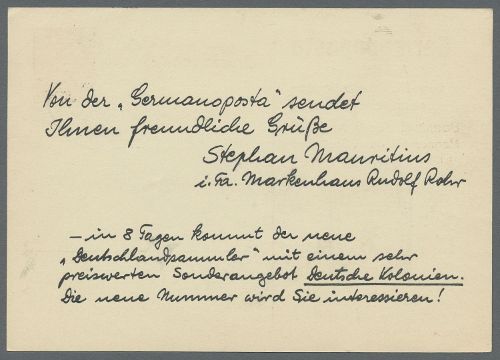 Von der „Germanoposta" sendet
Ihnen freundliche Grüße
Stephan Mauritius
i. Fa. Markenhaus Rudolf Rohr
— in 8 Tagen kommt der neue
„Deutschlandsammler" mit einem sehr
preiswerten Sonderangebot Deutsche Kolonien.
Die neue Nummer wird Sie interessieren!